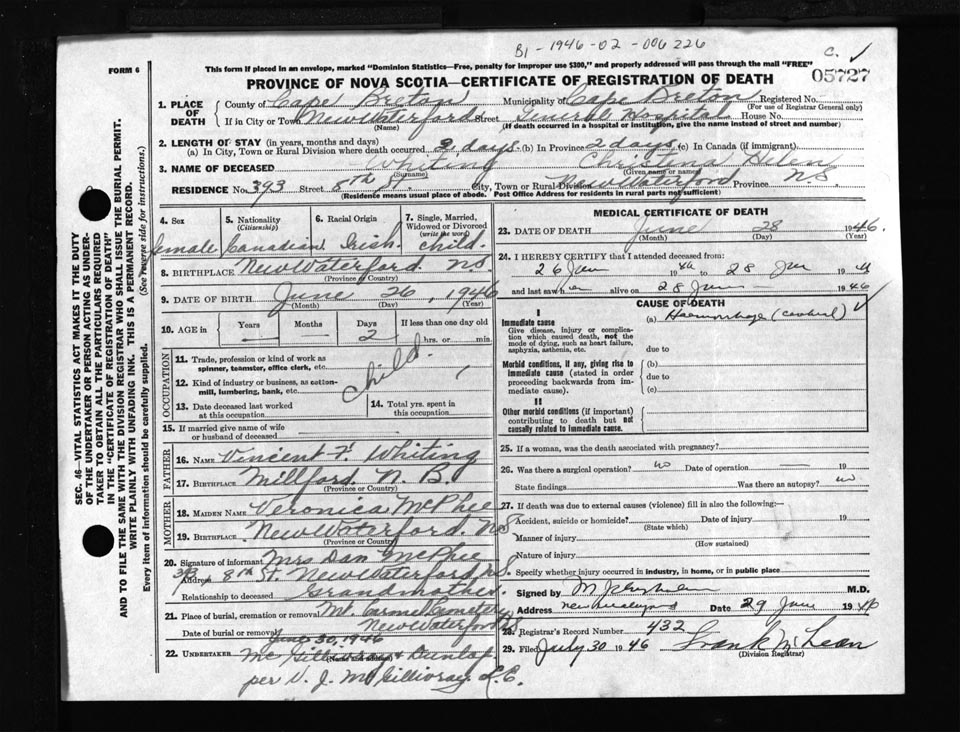 B1-1946-02-006226
C. ✓
FORM 6
This form if placed in an envelope, marked "Dominion Statistics—Free, penalty for improper use $300," and properly addressed will pass through the mail "FREE"
05727
PROVINCE OF NOVA SCOTIA—CERTIFICATE OF REGISTRATION OF DEATH
1. PLACE OF DEATH
County of Cape Breton Municipality of Cape Breton Registered No.
(For use of Registrar General only)
If in City or Town New Waterford Street General Hospital House No.
(Name) (If death occurred in a hospital or institution, give the name instead of street and number)
2. LENGTH OF STAY (in years, months and days)
(a) In City, Town or Rural Division where death occurred 2 days (b) In Province 2 days (c) In Canada (if immigrant).
3. NAME OF DECEASED Whiting Christena Helen
(Surname) (Given name or names)
RESIDENCE No. 393 Street 8th St City, Town or Rural Division New Waterford Province N.S
(Residence means usual place of abode. Post Office Address for residents in rural parts not sufficient)
4. Sex
5. Nationality
(Citizenship)
6. Racial Origin
7. Single, Married, Widowed or Divorced
(write the word)
female Canadian Irish child.
8. BIRTHPLACE New Waterford N.S.
(Province or Country)
9. DATE OF BIRTH June 26, 1946
(Month) (Day) (Year)
10. AGE in
Years Months Days If less than one day old
2 hrs. or min.
OCCUPATION
11. Trade, profession or kind of work as spinner, teamster, office clerk, etc.
Child
12. Kind of industry or business, as cotton-mill, lumbering, bank, etc.
13. Date deceased last worked at this occupation
14. Total yrs. spent in this occupation
15. If married give name of wife or husband of deceased
FATHER
16. NAME Vincent F. Whiting
17. BIRTHPLACE Millford N. B.
(Province or Country)
MOTHER
18. MAIDEN NAME Veronica McPhee
19. BIRTHPLACE New Waterford N.S
(Province or Country)
20. Signature of informant Mrs Dan McPhee
Address 393, 8th St. New Waterford, N.S.
Relationship to deceased Grandmother.
21. Place of burial, cremation or removal Mt. Carmel Cemetery
New Waterford N.S
Date of burial or removal June 30, 1946
22. UNDERTAKER McGillivray & Dunlap
(Name and address)
per V. J. McGillivray L.E.
MEDICAL CERTIFICATE OF DEATH
23. DATE OF DEATH June 28 1946.
(Month) (Day) (Year)
24. I HEREBY CERTIFY that I attended deceased from:
26 June 1946 to 28 Jun 1946
and last saw her alive on 28 June 1946
CAUSE OF DEATH
I
Immediate cause
Give disease, injury or complication which caused death, not the mode of dying, such as heart failure, asphyxia, asthenia, etc.
(a) Haemorrhage (cerebral) ✓
due to
Morbid conditions, if any, giving rise to immediate cause (stated in order proceeding backwards from immediate cause).
(b)
due to
(c)
II
Other morbid conditions (if important) contributing to death but not causally related to immediate cause.
25. If a woman, was the death associated with pregnancy?
26. Was there a surgical operation? no Date of operation 19
State findings Was there an autopsy? no
27. If death was due to external causes (violence) fill in also the following:
Accident, suicide or homicide? Date of injury 19
(State which)
Manner of injury
(How sustained)
Nature of injury
Specify whether injury occurred in industry, in home, or in public place
Signed by M.D.
Address Date 29 June 1946
28. Registrar's Record Number 432
29. Filed July 30 1946 Frank McLean
(Division Registrar)
SEC. 46—VITAL STATISTICS ACT MAKES IT THE DUTY
OF THE UNDERTAKER OR PERSON ACTING AS UNDER-
TAKER TO OBTAIN ALL THE PARTICULARS REQUIRED
IN THE "CERTIFICATE OF REGISTRATION OF DEATH"
AND TO FILE THE SAME WITH THE DIVISION REGISTRAR WHO SHALL ISSUE THE BURIAL PERMIT.
WRITE PLAINLY WITH UNFADING INK. THIS IS A PERMANENT RECORD.
Every item of Information should be carefully supplied. (See reverse side for instructions.)